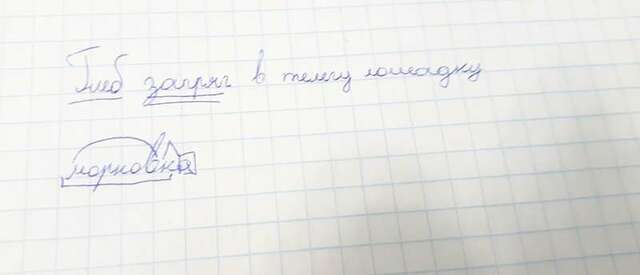 Глеб запряг в телегу лошадку
морковка